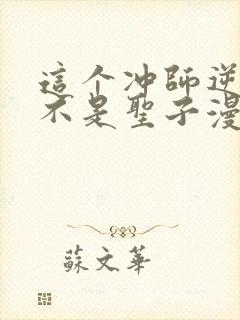 這个冲師逆
不是聖子漫
蘇文華